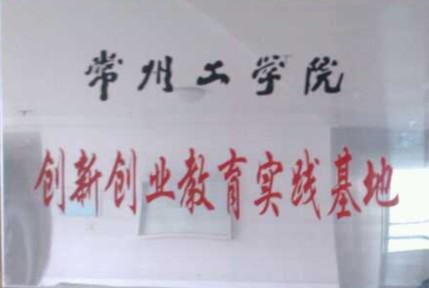 常州工学院
创新创业教育实践基地